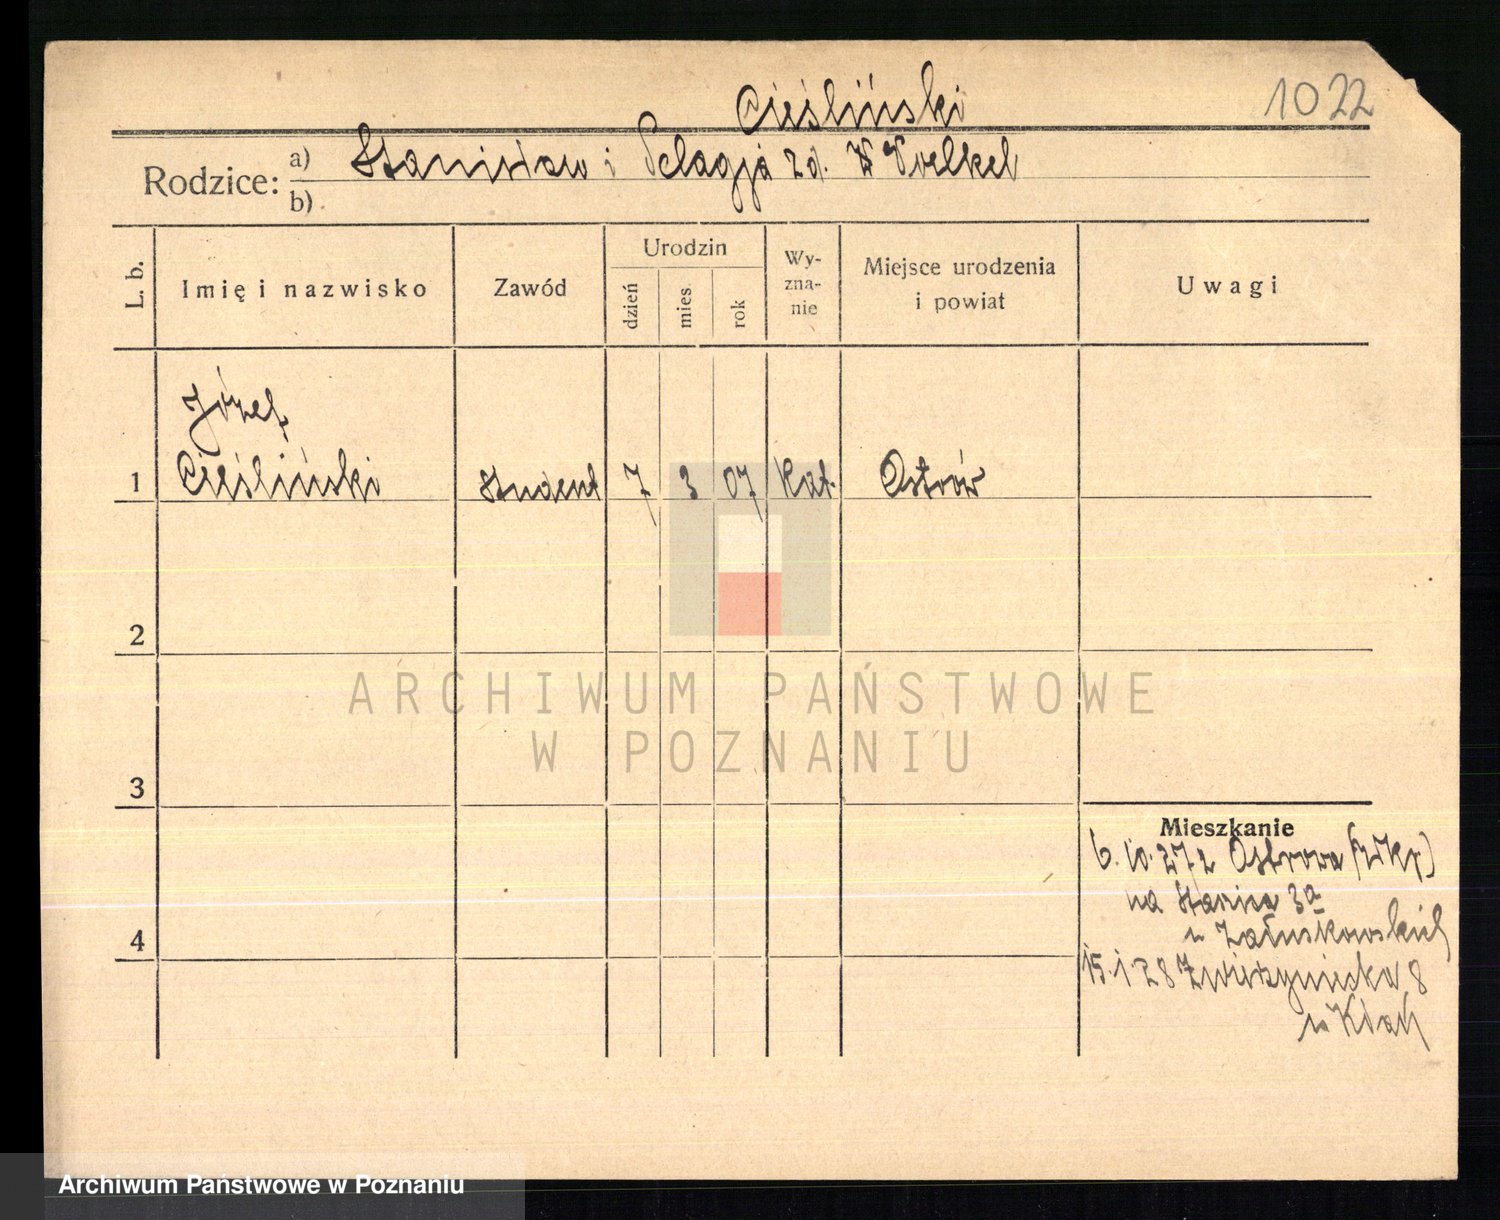 1022
Cieśliński
Rodzice: a) Stanisław i Pelagja z d. Voelkel
b)
L. b.
Imię i nazwisko
Zawód
Urodzin
dzień
mies
rok
Wy-
zna-
nie
Miejsce urodzenia
i powiat
Uwagi
Józef
1 Cieśliński Student 7 3 07 Kat. Ostrów
2
3
4
ARCHIWUM PAŃSTWOWE
W POZNANIU
Mieszkanie
6. 10. 27 z Ostrowa (Wkp)
na 3a
u Załuskowskich
15. 1 28 Zwierzyniecka 8
u
Archiwum Państwowe w Poznaniu